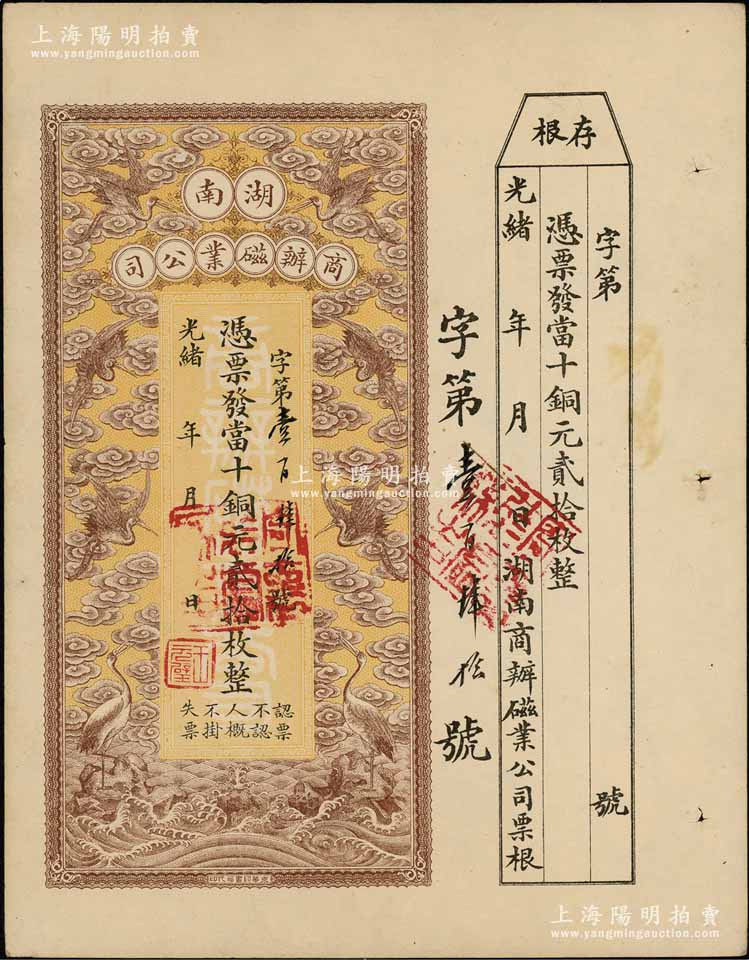 上海陽明拍賣
www.yangmingauction.com
上海陽明拍賣
www.yangmingauction.com
存根
字第
號
憑票發當十銅元貳拾枚整
光緒 年 月 日湖南商辦磁業公司票根
字第壹百肆拾號
湖南
商辦磁業公司
字第壹百肆拾號
憑票發當十銅元貳拾枚整
光緒 年 月 日
認票不認人概不掛失票
上海陽明拍賣
www.yangmingauction.com
上海陽明拍賣
www.yangmingauction.com